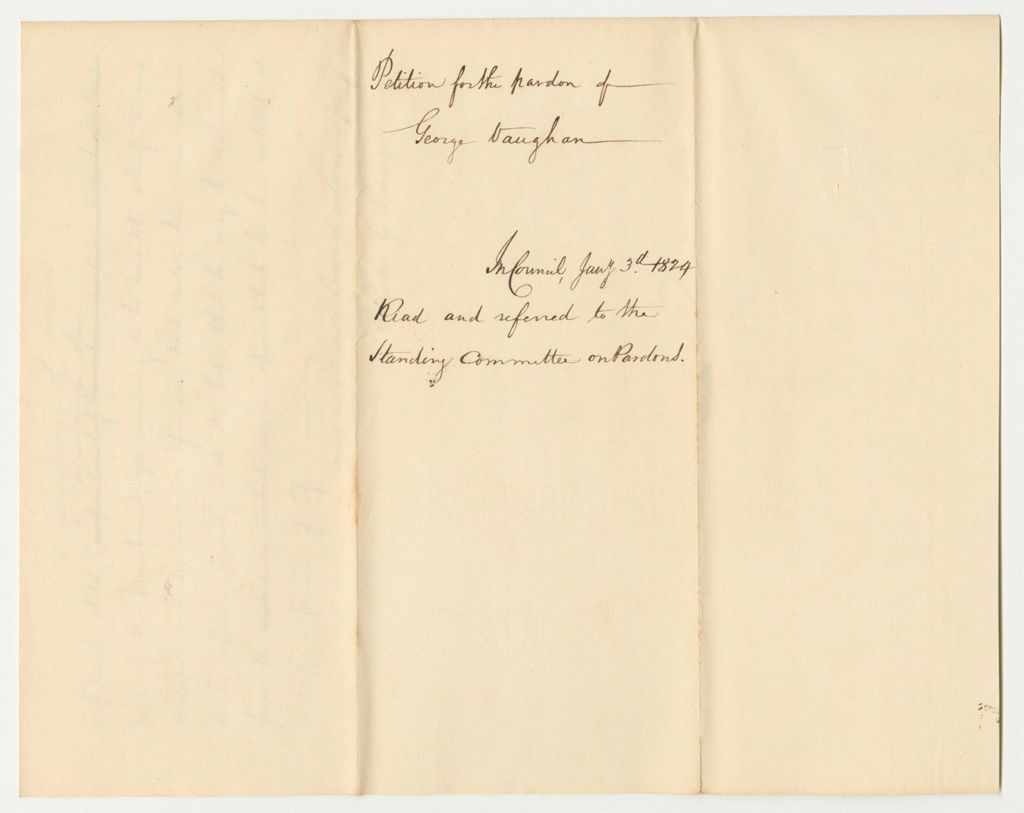 Petition for the pardon of
George Vaughan
In Council, Jany 3.d 1824
Read and referred to the
Standing Committee on Pardons.